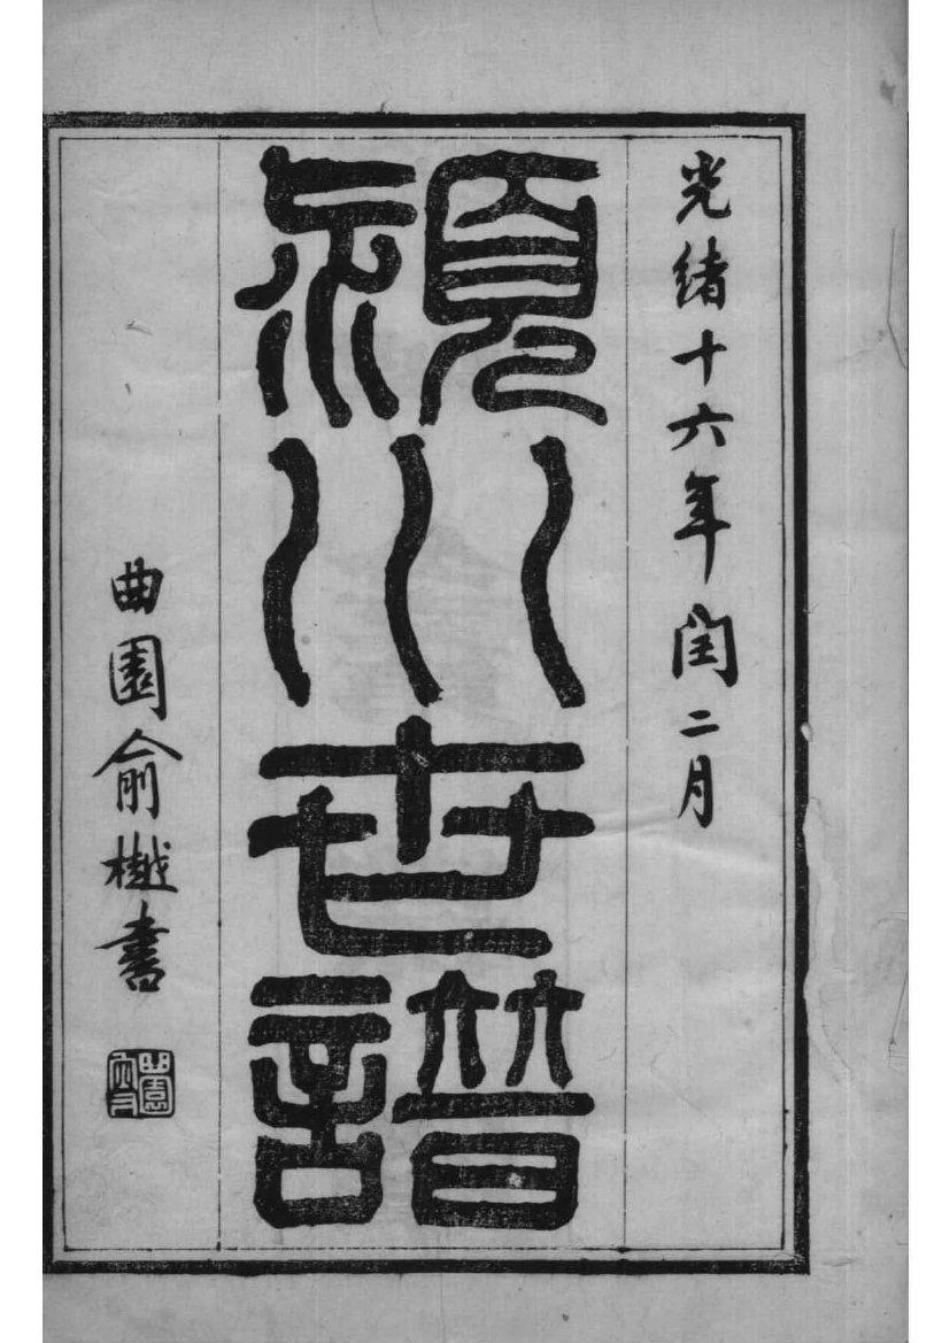 光緒十六年閏二月
潁川世譜
曲園俞樾書
曲園叟